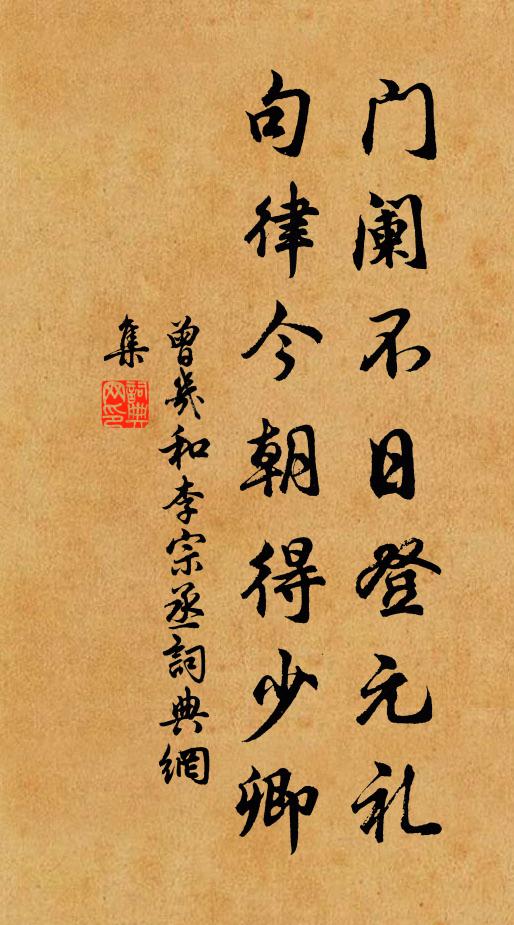 门阑不日登元礼
句律今朝得少卿
曾几和李宗丞詞典網
集
詞典網印